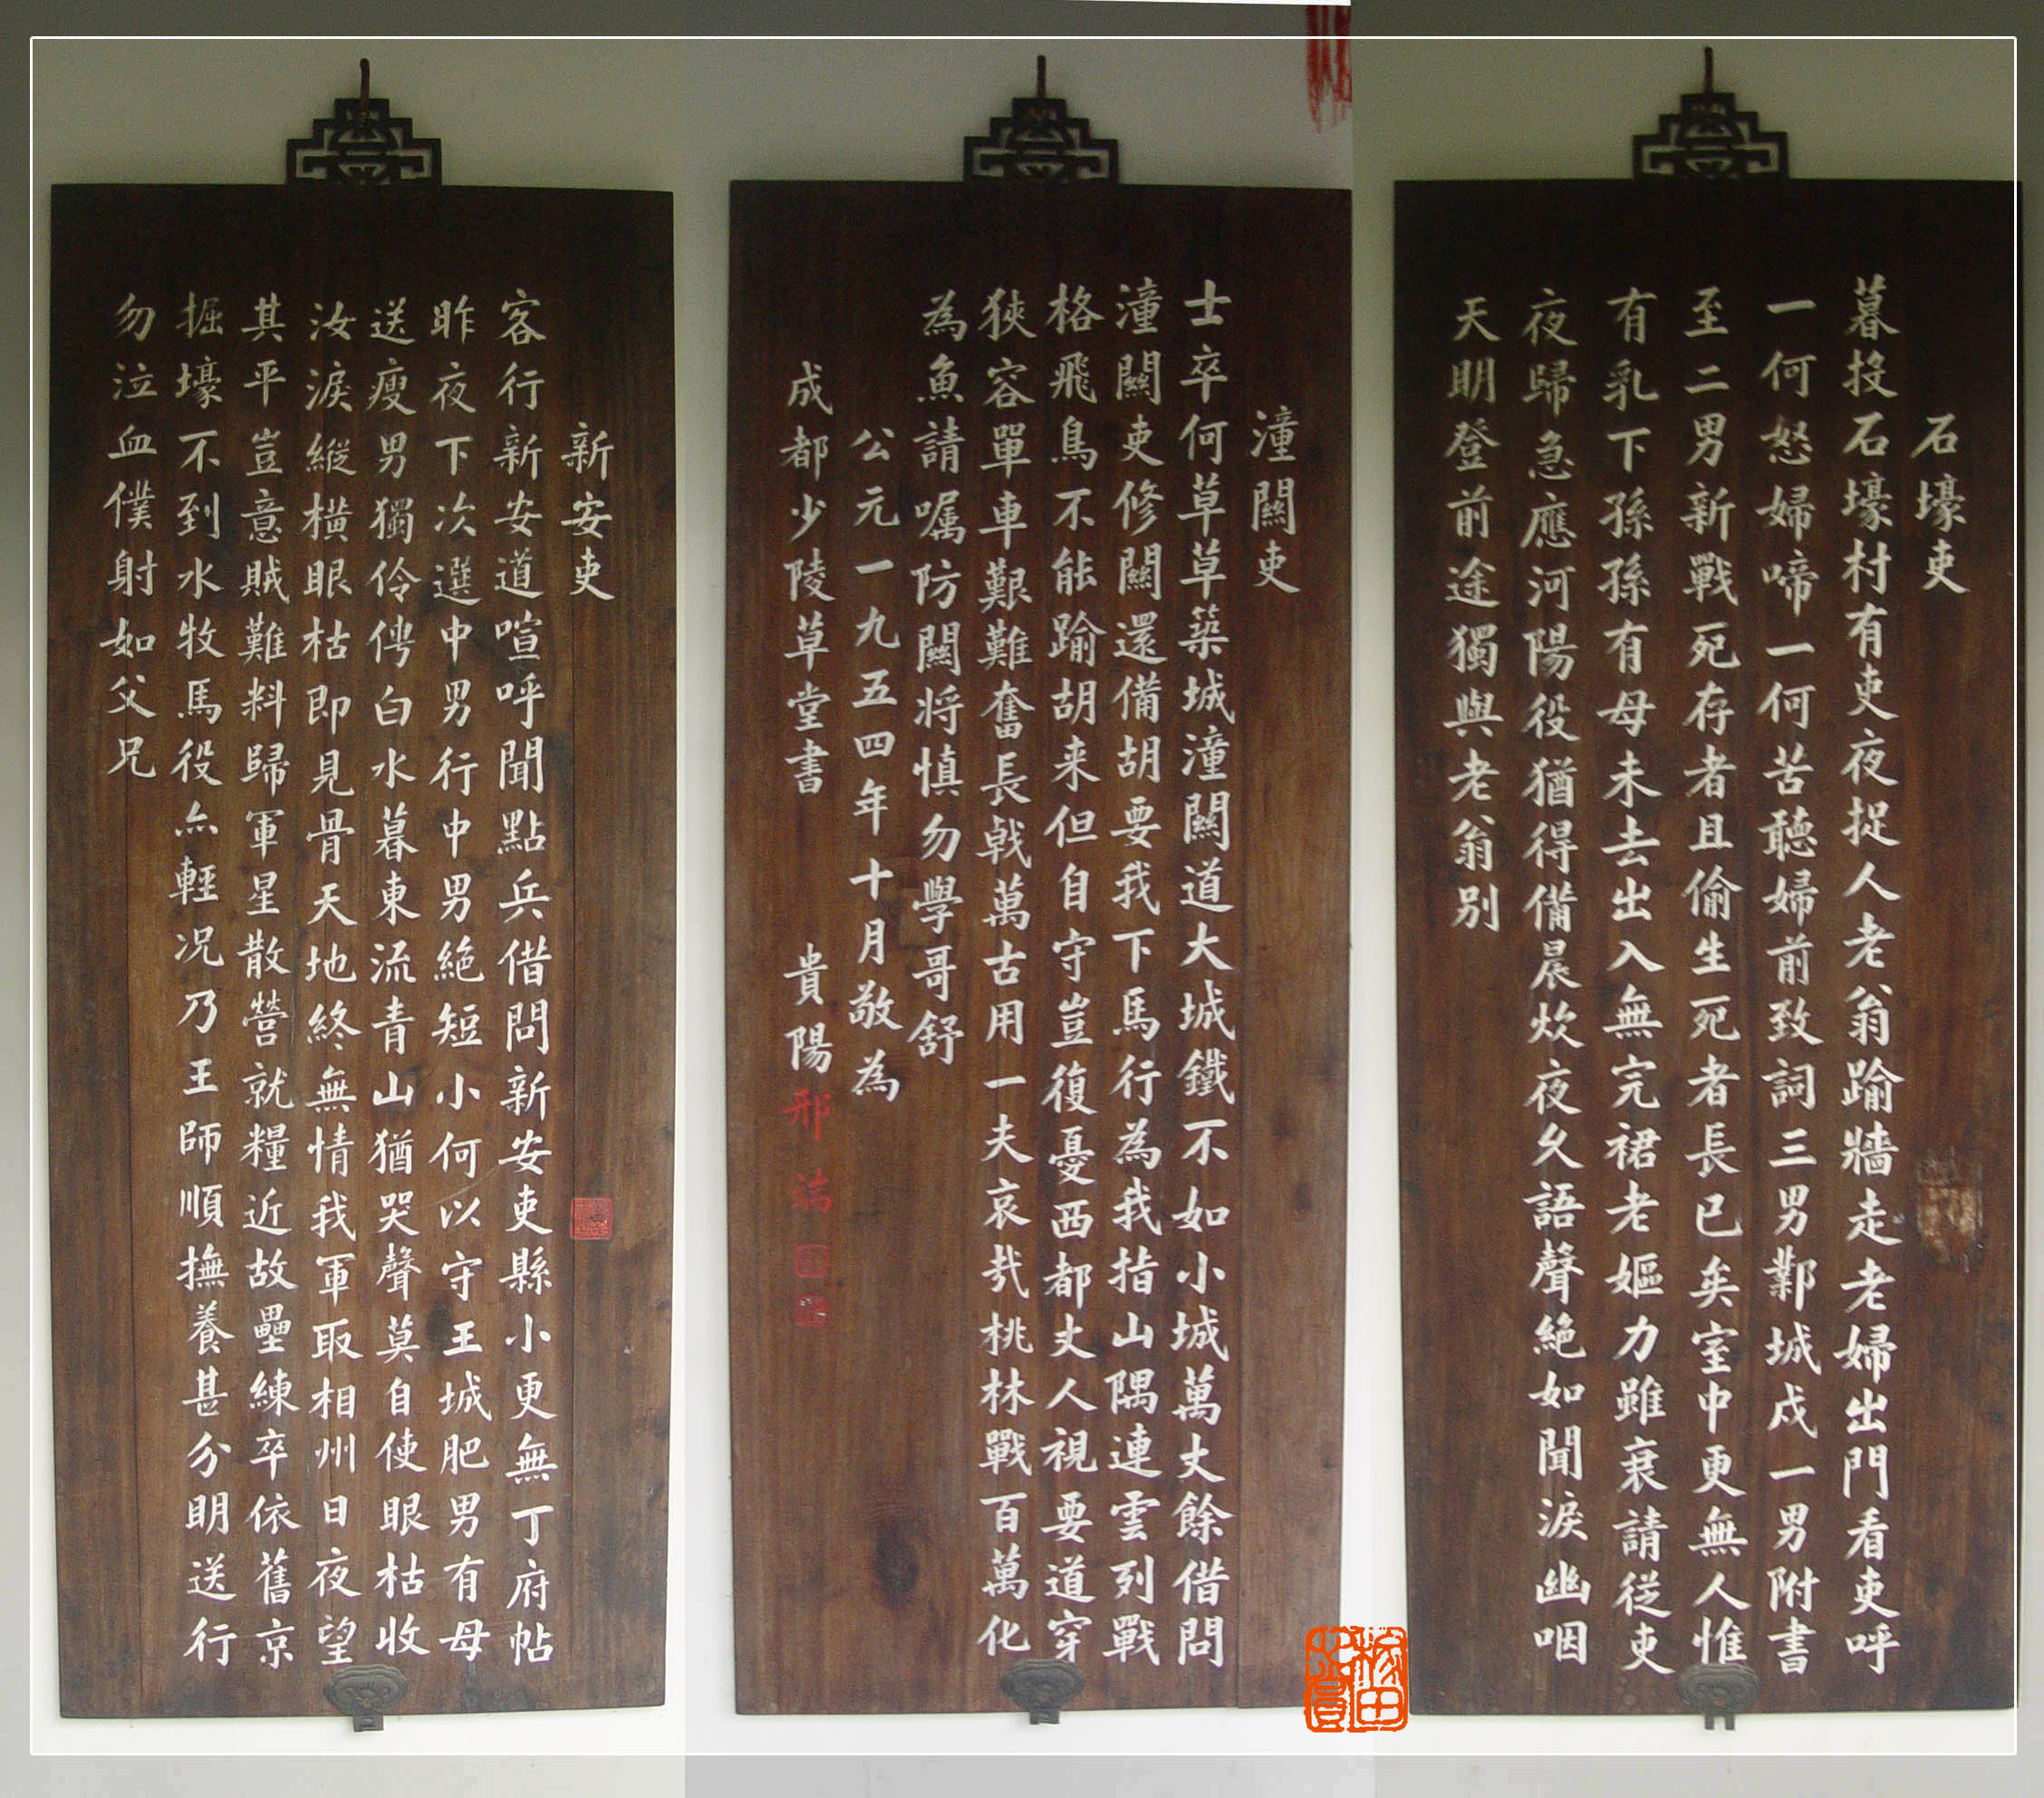 石壕吏
暮投石壕村有吏夜捉人老翁踰牆走老婦出門看吏呼
一何怒婦啼一何苦聽婦前致詞三男鄴城戍一男附書
至二男新戰死存者且偷生死者長已矣室中更無人惟
有乳下孫孫有母未去出入無完裙老嫗力雖衰請從吏
夜歸急應河陽役猶得備晨炊夜久語聲絕如聞淚幽咽
天明登前途獨與老翁別
潼關吏
士卒何草草築城潼關道大城鐵不如小城萬丈餘借問
潼關吏修關還備胡要我下馬行為我指山隅連雲列戰
格飛鳥不能踰胡来但自守豈復憂西都丈人視要道穿
狹容單車艱難奮長戟萬古用一夫哀哉桃林戰百萬化
為魚請囑防關將慎勿學哥舒
公元一九五四年十月敬為
成都少陵草堂書 貴陽邢端
新安吏
客行新安道喧呼聞點兵借問新安吏縣小更無丁府帖
昨夜下次選中男行中男絕短小何以守王城肥男有母
送瘦男獨伶俜白水暮東流青山猶哭聲莫自使眼枯收
汝淚縱橫眼枯即見骨天地終無情我軍取相州日夜望
其平豈意賊難料歸軍星散營就糧近故壘練卒依舊京
掘壕不到水牧馬役亦輕況乃王師順撫養甚分明送行
勿泣血僕射如父兄